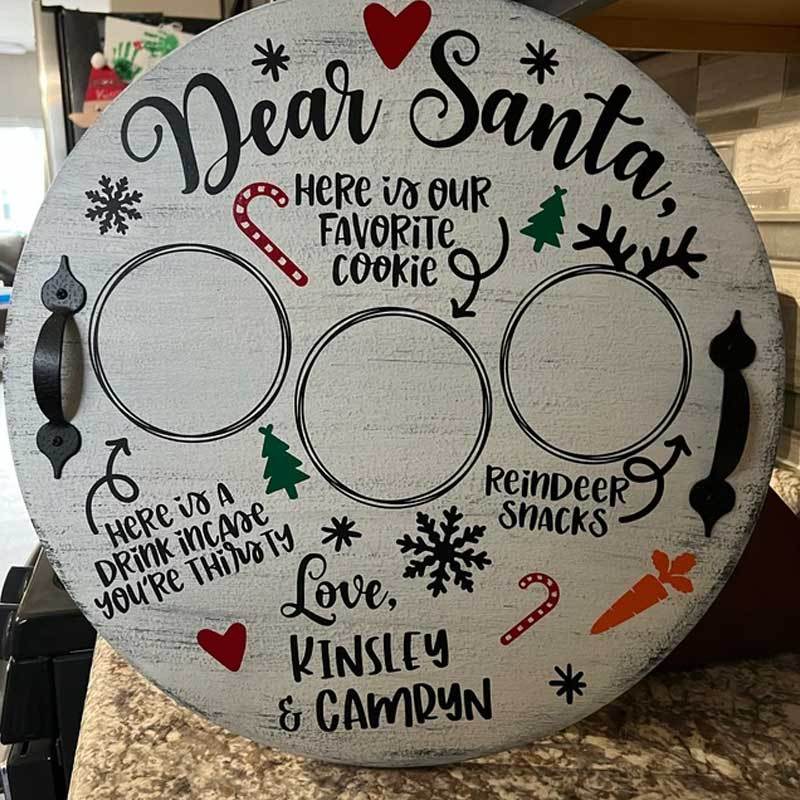 Dear Santa,
HERE is OUR
FAVORITE
COOKIE
HERE is A
DRINK iNCASE
YOU'RE THIRSTY
REiNDEER
SNACKS
Love,
KINSLEY
& CAMRYN